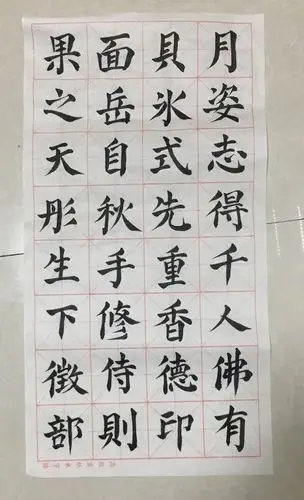 月姿志得千人佛有
具氷式先重香德印
面岳自秋手修侍則
果之天彤生下徵部